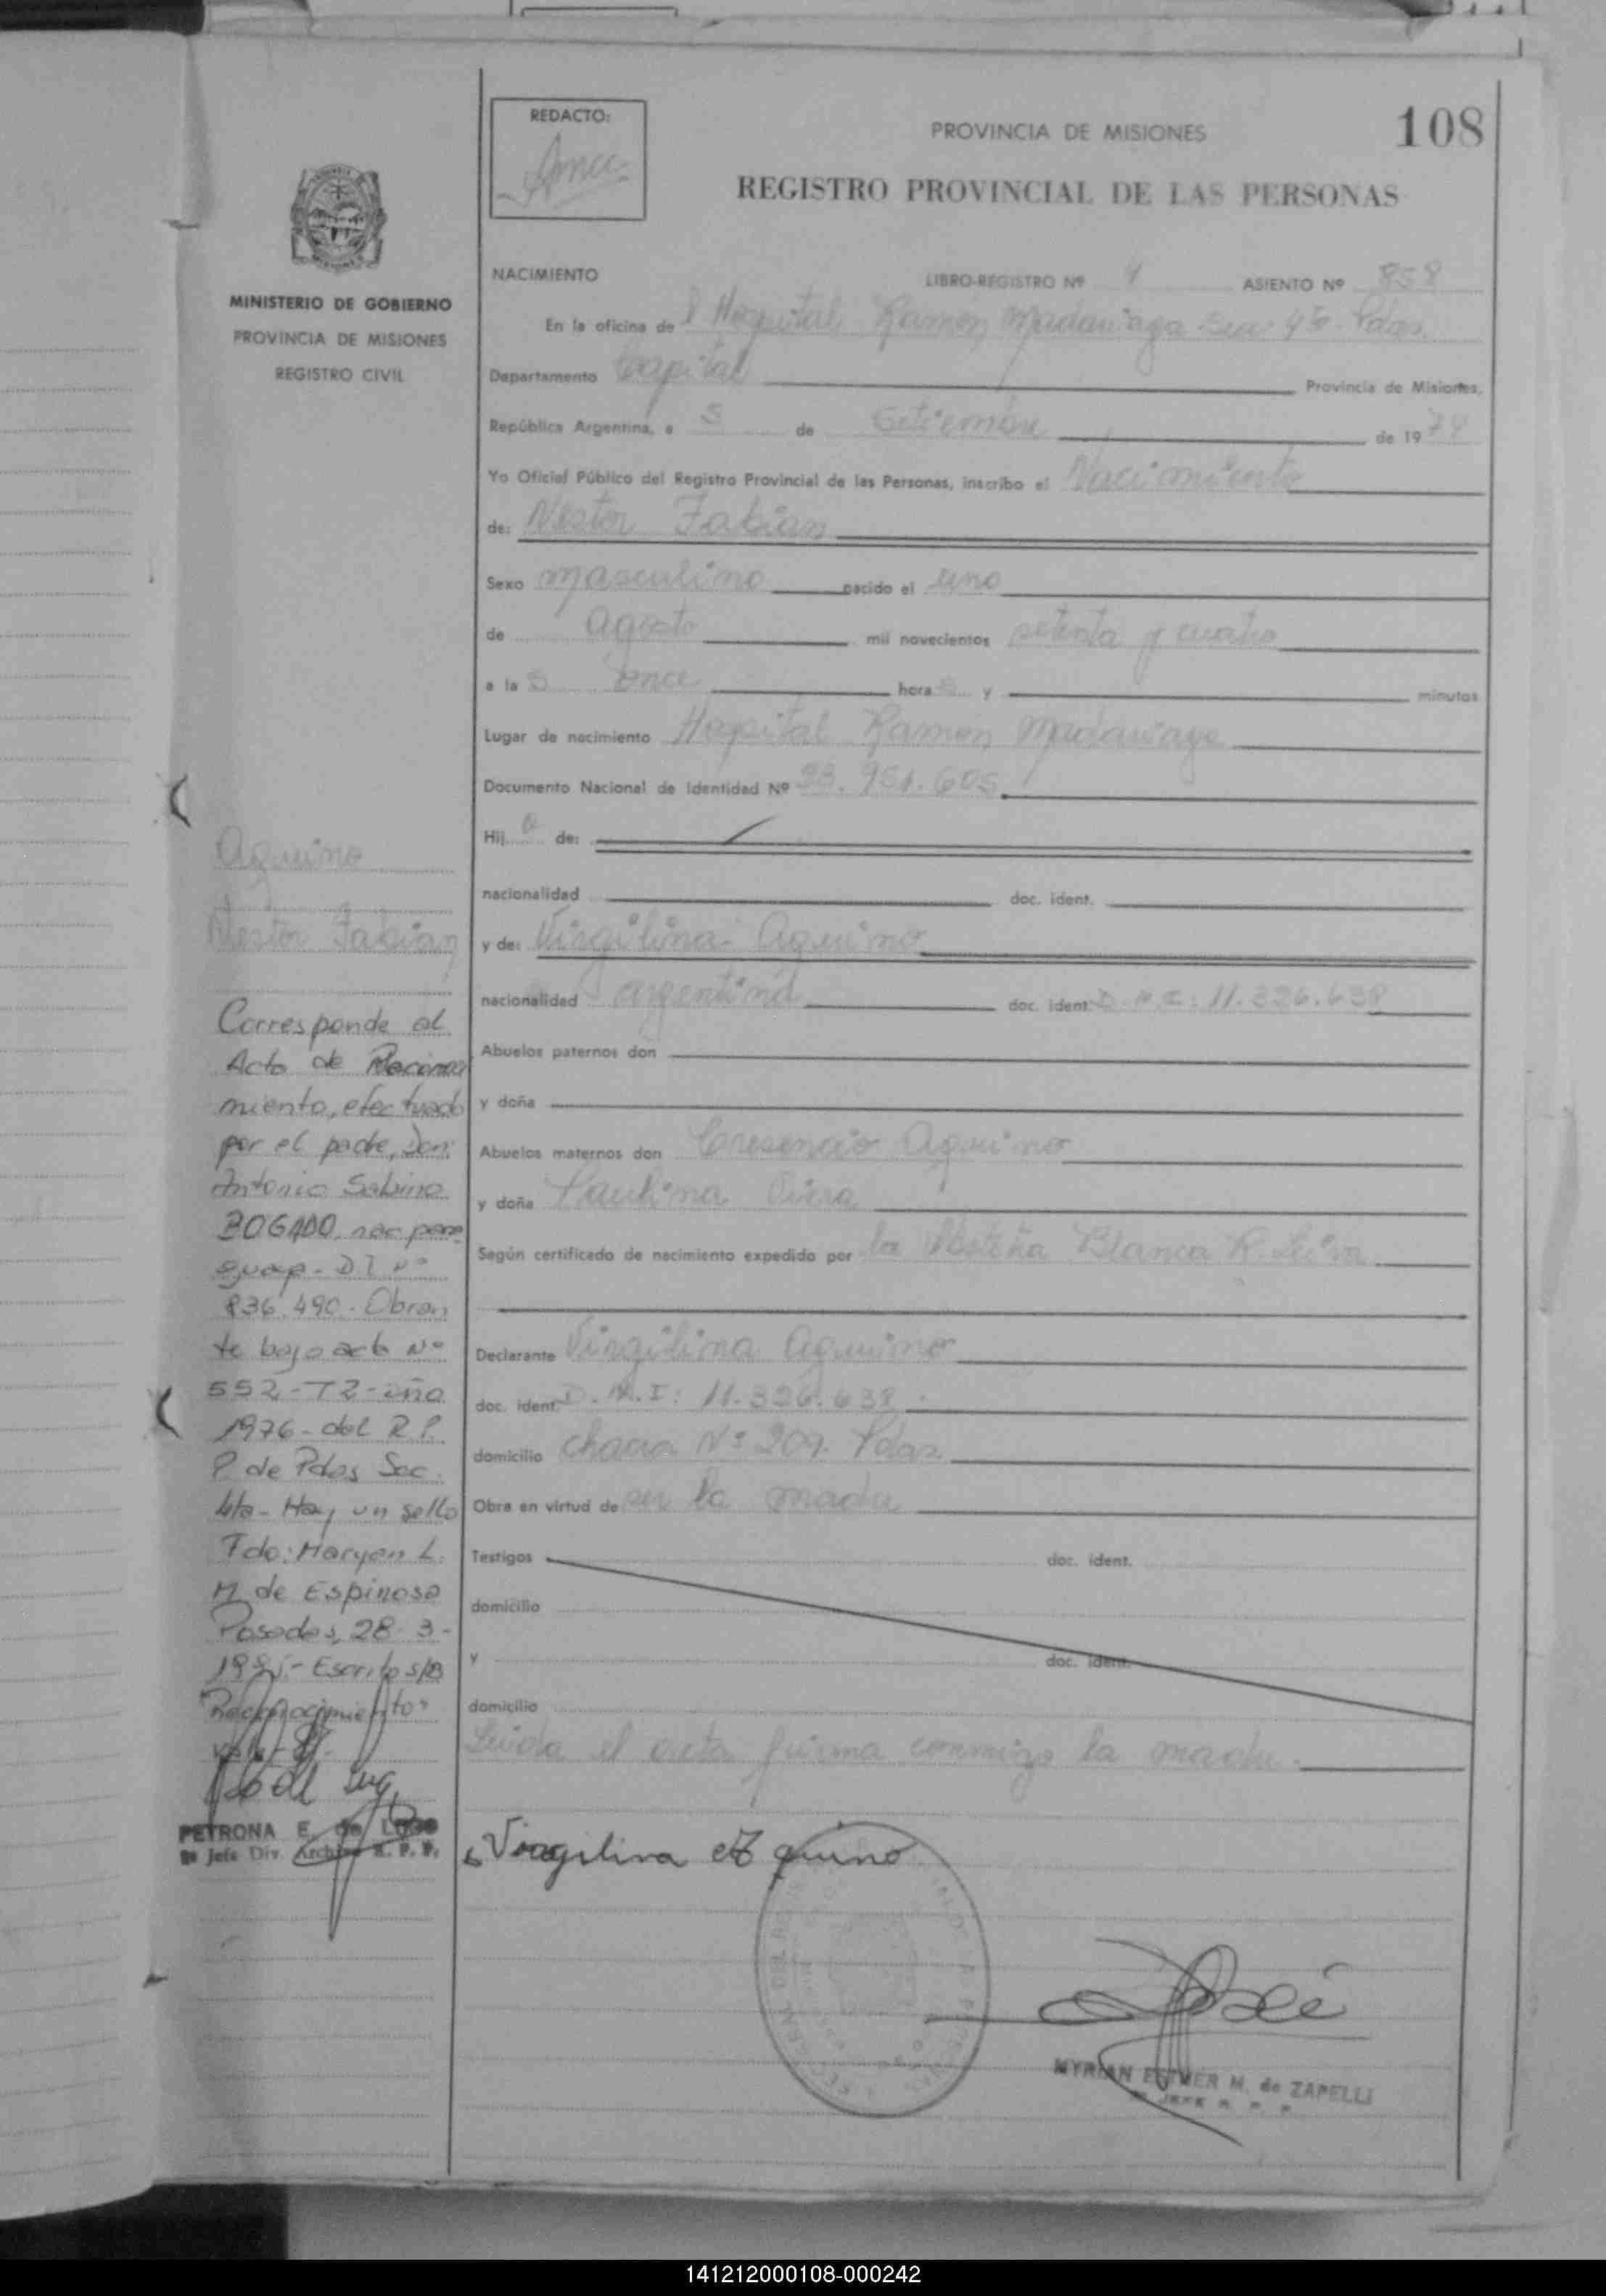 REDACTO:
PROVINCIA DE MISIONES
108
REGISTRO PROVINCIAL DE LAS PERSONAS
MINISTERIO DE GOBIERNO
PROVINCIA DE MISIONES
REGISTRO CIVIL
NACIMIENTO LIBRO-REGISTRO Nº ASIENTO Nº 858
En la oficina de l Hospital Ramon Madariaga Sec 4ta. Pdas.
Departamento Capital Provincia de Misiones.
República Argentina, a 5 de Setiembre de 1974
Yo Oficial Público del Registro Provincial de las Personas, inscribo el Nacimiento
de: Nestor Fabian
Sexo masculino nacido el uno
de agosto mil novecientos setenta y cuatro
a la s once hora s y minutos
Lugar de nacimiento Hospital Ramon Madariaga
Documento Nacional de Identidad Nº 23.951.605
Hij o de:
nacionalidad doc. ident.
y de: Virgilina Aquino
nacionalidad argentina doc. ident. D.N.I: 11.326.638
Abuelos paternos don
y doña
Abuelos maternos don Cresencio Aquino
y doña Paulina
Según certificado de nacimiento expedido por la Blanca R. Leiva
Declarante Virgilina Aquino
doc. ident. D.N.I: 11.326.638
domicilio chacra Nº 209. Pdas.
Obra en virtud de ser la madre
Testigos doc. ident.
domicilio
y doc. ident.
domicilio
Leida el acta firma conmigo la madre.
Virgilina Aquino
MYRIAN ESTHER M. de ZAPELLI
Aquino
Nestor Fabian
Corresponde al
Acto de Reconoci
miento, efectuado
por el padre, Don:
Antonio Sabino
BOGADO, nac para
guay - D I Nº
836.490 - Obran
te bajo acta Nº
552 - T2 - año
1976 - del R.P.
P. de Pdas Sec.
4ta - Hay un sello
Fdo: Maryen L.
M. de Espinosa
Posadas, 28-3-
Escrito s/B
"Reconocimiento"
PETRONA E. de LUGO
Jefe Div. Archivo R. P. P.
141212000108-000242